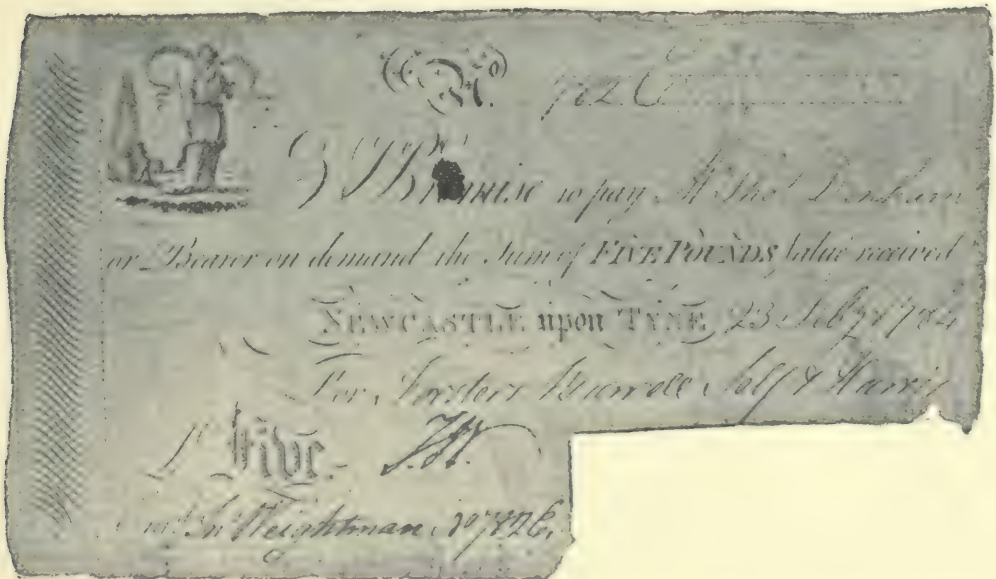 No. 7826
I Promise to pay Mr. Thos. Denham
or Bearer on demand the Sum of FIVE POUNDS Value received
NEWCASTLE upon TYNE 23 Feby 1784
For Forsters Burrell Self &
£ Five. J.W.
Jn. Weightman No 7826.